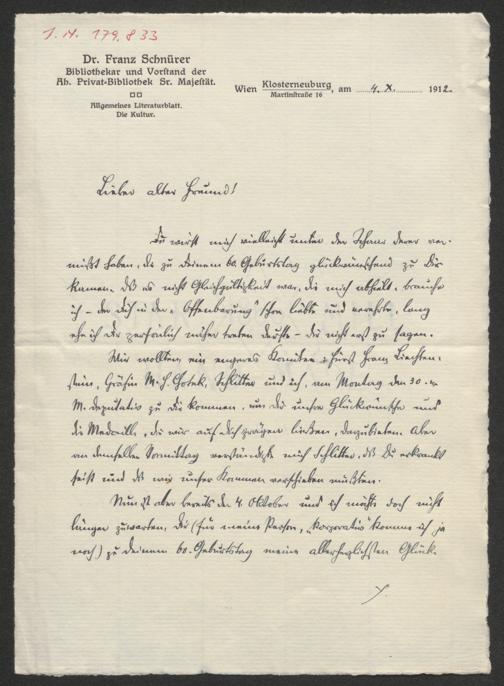 J. N. 179.833
Dr. Franz Schnürer
Bibliothekar und Vorstand der
Ah. Privat-Bibliothek Sr. Majestät.
Allgemeines Literaturblatt.
Die Kultur.
Wien Klosterneuburg, am 4. X. 1912.
Martinstraße 16
Lieber alter Freund!
Du wirst mich vielleicht unter der Schaar derer ver-
mißt haben, die zu Deinem 60. Geburtstag glückwünschend zu Dir
kamen. Daß es nicht Gleichgültigkeit war, die mich abhielt, brauche
ich – der Dich in der „Offenbarung" schon liebte und verehrte, lang
ehe ich Dir persönlich näher treten durfte – Dir nicht erst zu sagen.
Wir wollten, ein engeres Komitee: Fürst Franz Liechten-
stein, Gräfin M. H. Chotek, Schlitter und ich, am Montag den 30. v.
M. deputativ zu Dir kommen, um Dir unsre Glückwünsche und
die Medaille, die wir auf Dich prägen ließen, darzubieten. Aber
an demselben Vormittag verständigte mich Schlitter, daß Du erkrankt
seist und daß wir unser Kommen verschieben müßten.
Nun ist aber bereits der 4. Oktober und ich möchte doch nicht
länger zuwarten, Dir (für meine Person, „korporativ" komme ich ja
noch) zu Deinem 60. Geburtstag meine allerherzlichsten Glück-